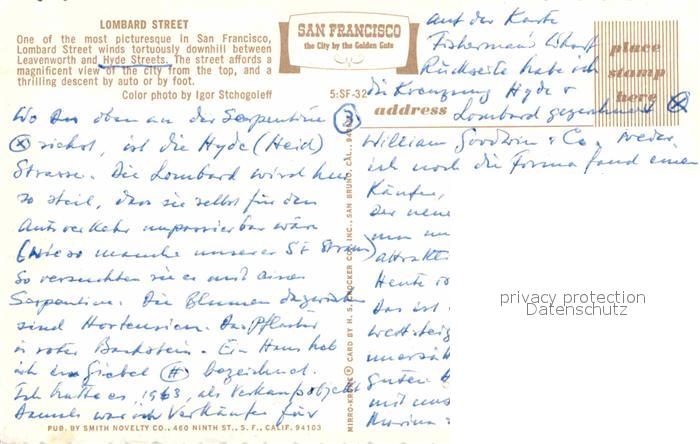 LOMBARD STREET
One of the most picturesque in San Francisco,
Lombard Street winds tortuously downhill between
Leavenworth and Hyde Streets. The street affords a
magnificent view of the city from the top, and a
thrilling descent by auto or by foot.
Color photo by Igor Stchogoleff
SAN FRANCISCO
the City by the Golden Gate
5:SF-32
address
place
stamp
here
Wo oben an der Serpentine
siehst, ist die Hyde (Heid)
Strasse. Die Lombard wird hier
so steil, dass sie selbst für den
Autoverkehr unpassierbar wäre
(wie so manche unserer SF Strassen)
So versuchten sie es mit einer
Serpentine. Die Blumen dazwischen
sind Hortensien. Das Pflaster
ist roter Backstein. Ein Haus hab
ich im Giebel (H) bezeichnet.
Ich hatte es, 1963, als Verkaufsobjekt
Damals war ich Verkäufer für
PUB. BY SMITH NOVELTY CO., 460 NINTH ST., S.F., CALIF. 94103
MIRRO-KROME® CARD BY H. S. CROCKER CO., INC., SAN BRUNO, CAL.
auf der Karte
Fisherman's Wharf
Rückseite habe ich
die Kreuzung Hyde +
Lombard gezeichnet
William Goodwin & Co., weder
ich noch die Firma fand einen
Käufer,
der neue
attrakti
Heute
Das ist
guten
mit uns
Marina
privacy protection
Datenschutz